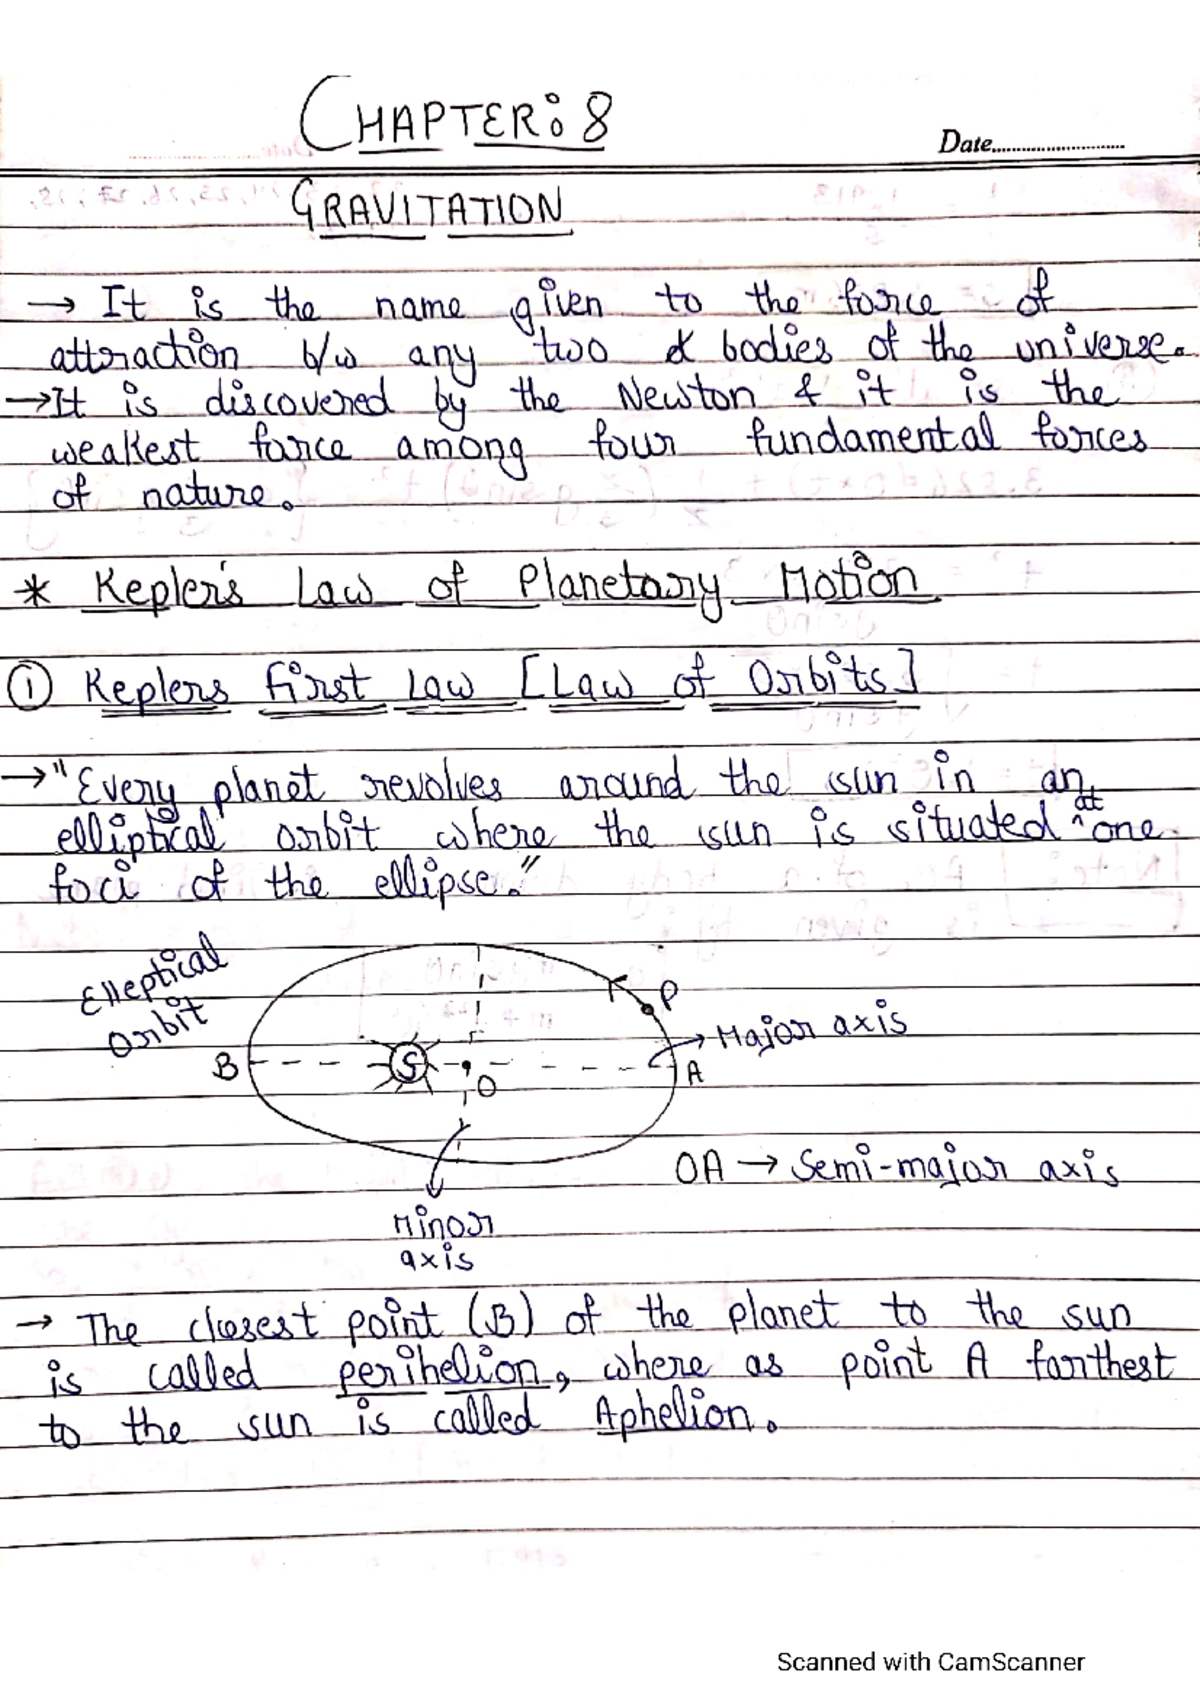 CHAPTER: 8
Date
GRAVITATION
→ It is the name given to the force of
attraction b/w any two bodies of the universe.
→ It is discovered by the Newton & it is the
weakest force among four fundamental forces
of nature.
* Kepler's Law of Planetary Motion
① Keplers First Law [Law of Orbits]
→ "Every planet revolves around the sun in an
elliptical orbit where the sun is situated at one
foci of the ellipse."
Elleptical
orbit
P
Major axis
B
S
O
A
OA → Semi-major axis
Minor
axis
→ The closest point (B) of the planet to the sun
is called perihelion, where as point A farthest
to the sun is called Aphelion.
Scanned with CamScanner